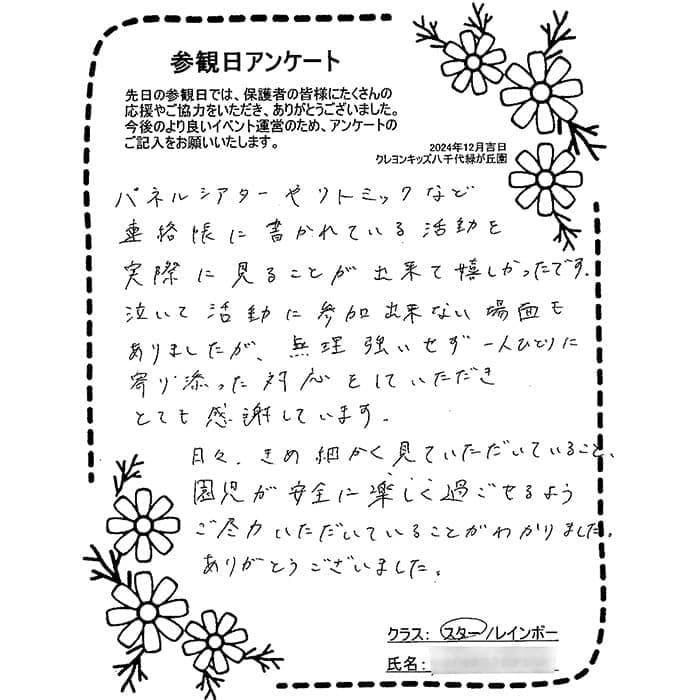 参観日アンケート
先日の参観日では、保護者の皆様にたくさんの
応援やご協力をいただき、ありがとうございました。
今後のより良いイベント運営のため、アンケートの
ご記入をお願いいたします。
2024年12月吉日
クレヨンキッズ八千代緑が丘園
パネルシアターやリトミックなど
連絡帳に書かれている活動を
実際に見ることが出来て嬉しかったです.
泣いて活動に参加出来ない場面も
ありましたが、無理強いせず一人ひとりに
寄り添った対応をしていただき
とても感謝しています.
日々、きめ細かく見ていただいていること、
園児が安全に楽しく過ごせるよう
ご尽力いただいていることがわかりました.
ありがとうございました.
クラス: スター/レインボー
氏名: